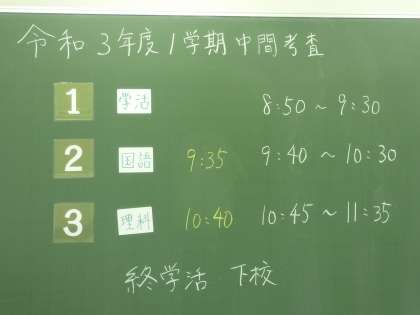 令和3年度1学期中間考査
1 学活 8:50 ~ 9:30
2 国語 9:35 9:40 ~ 10:30
3 理科 10:40 10:45 ~ 11:35
終学活 下校